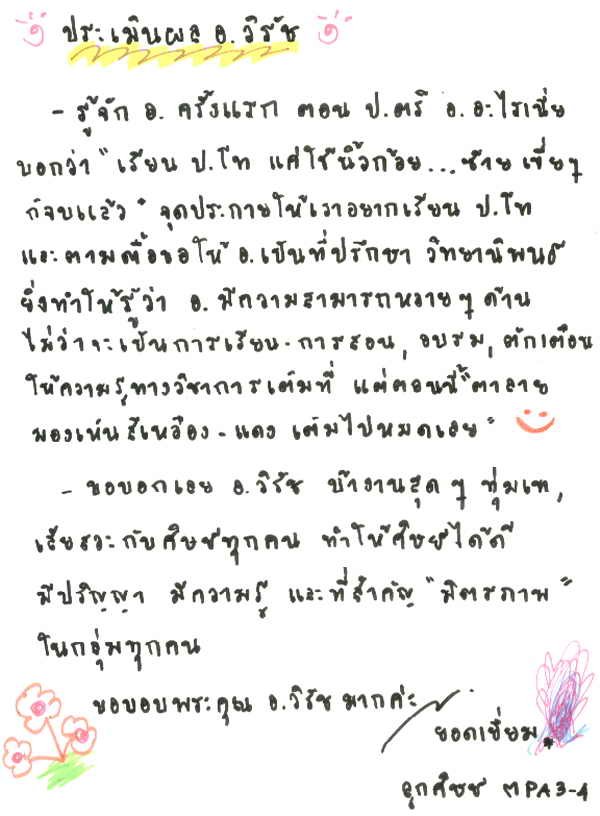 ประเมินผล อ. วิรัช
- รู้จัก อ. ครั้งแรก ตอน ป.ตรี อ. อะไรเนี่ย
บอกว่า "เรียน ป.โท แค่ใช้นิ้วก้อย...ซ้าย เขี่ยๆ
ก็จบแล้ว" จุดประกายให้เราอยากเรียน ป.โท
และตามตื้อขอให้ อ.เป็นที่ปรึกษา วิทยานิพนธ์
ยิ่งทำให้รู้ว่า อ. มีความสามารถหลายๆ ด้าน
ไม่ว่าจะเป็นการเรียน-การสอน, อบรม, ตักเตือน
ให้ความรู้ทางวิชาการเต็มที่ แต่ตอนนี้ "ตาลาย
มองเห็นสีเหลือง-แดง เต็มไปหมดเลย"
- ขอบอกเลย อ.วิรัช บ้างานสุดๆ ทุ่มเท,
เสียสละกับศิษย์ทุกคน ทำให้ศิษย์ได้ดี
มีปริญญา มีความรู้ และที่สำคัญ "มิตรภาพ"
ในกลุ่มทุกคน
ขอบอบพระคุณ อ.วิรัช มากค่ะ
ยอดเยี่ยม
ลูกศิษย์ MPA3-4